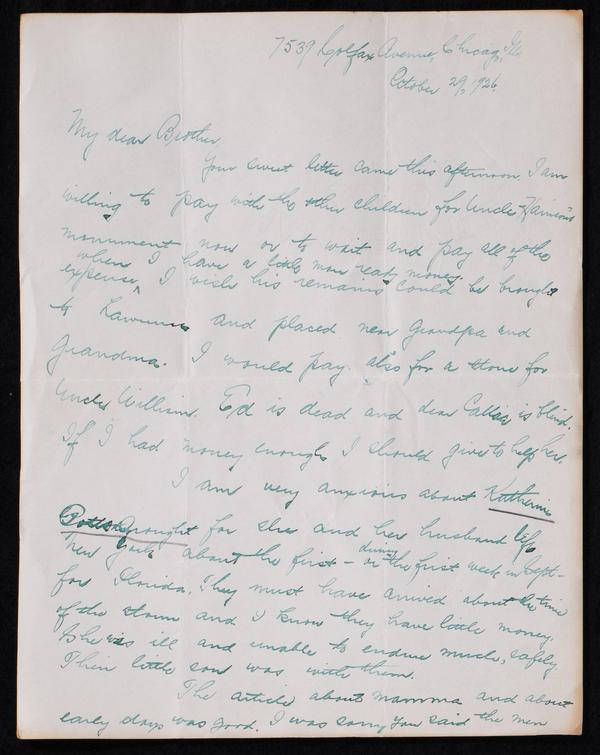 7539 Colfax Avenue, Chicago, Ills
October 29, 1926.
My dear Brother,
Your sweet letter came this afternoon. I am
willing to pay with the other children for Uncle Harrison's
monument now or to wait and pay all of the
when I have a little more ready money.
expense ^ I wish his remains could be brought
to and placed near Grandpa and
Grandma. I would pay also for a stone for
Uncle William. Ed is dead and dear Callie is blind.
If I had money enough I should give to help her.
I am very anxious about Katherine
for she and her husband left
New York about the first -
or during the first week in Sept -
for Florida. They must have arrived about the time
of the storm and I know they have little money.
She was ill and unable to endure much, safely.
Their little son was with them.
The article about mamma and about
early days was good. I was sorry you said the men